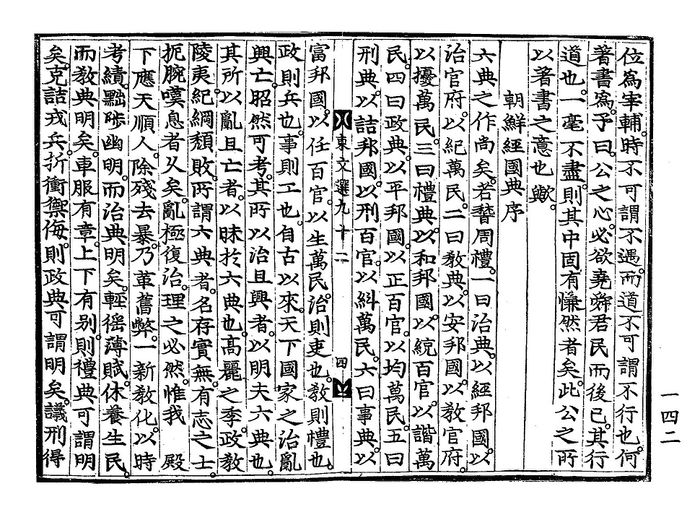 位爲宰輔。時不可謂不遇。而道不可謂不行也。何
著書爲。予曰。公之心。必欲堯舜君民而後已。其行
道也。一毫不盡。則其中固有慊然者矣。此公之所
以著書之意也歟。
朝鮮經國典序
六典之作尚矣。若稽周禮。一曰治典。以經邦國。以
治官府。以紀萬民。二曰敎典。以安邦國。以敎官府。
以擾萬民。三曰禮典。以和邦國。以統百官。以諧萬
民。四曰政典。以平邦國。以正百官。以均萬民。五曰
刑典。以詰邦國。以刑百官。以糾萬民。六曰事典。以
東文選九十二 四
富邦國。以任百官。以生萬民。治則吏也。敎則禮也。
政則兵也。事則工也。自古以來。天下國家之治亂
興亡。昭然可考。其所以治且興者。以明夫六典也。
其所以亂且亡者。以昧於六典也。高麗之季。政敎
陵夷。紀綱頽敗。所謂六典者。名存實無。有志之士。
扼腕嘆息者久矣。亂極復治。理之必然。惟我 殿
下應天順人。除殘去暴。乃革舊弊。一新敎化。以時
考績。黜陟幽明。而治典明矣。輕徭薄賦。休養生民。
而敎典明矣。車服有章。上下有别。則禮典可謂明
矣。克詰戎兵。折衝禦侮。則政典可謂明矣。議刑得
一四二